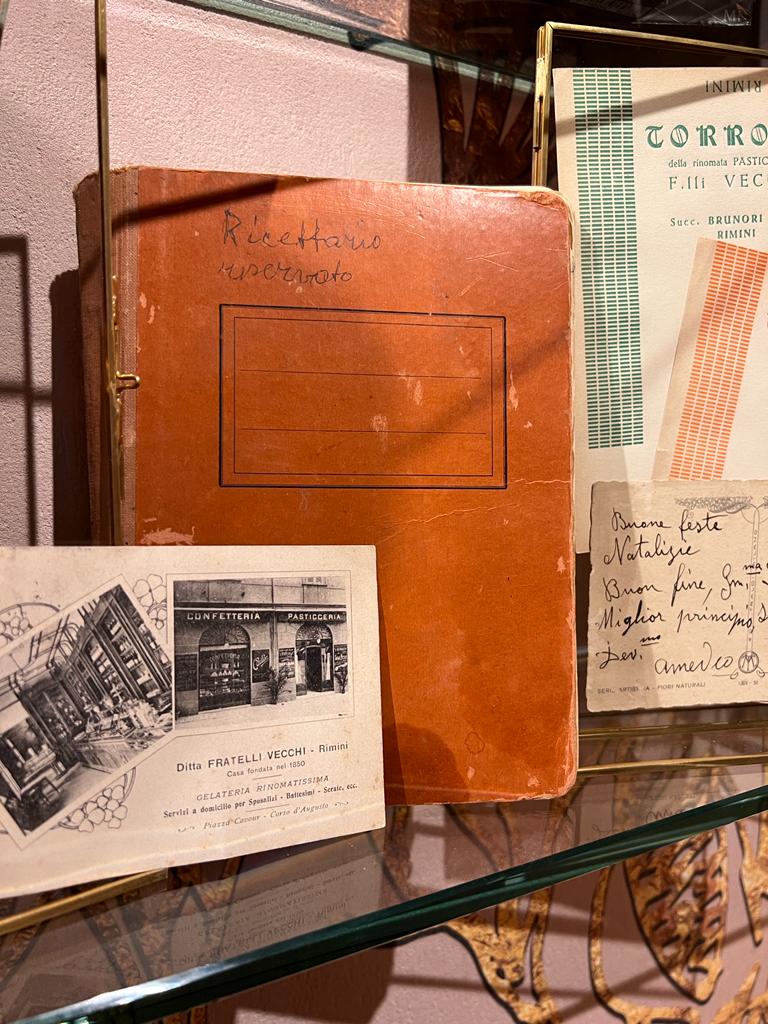 Ricettario
riservato
RIMINI
TORRO
della rinomata PASTIC
F.lli VEC
Succ. BRUNORI
RIMINI
Buone feste
Natalizie
Buon fine,
Miglior principio, S
Dev.mo Amedeo
FIORI NATURALI
CONFETTERIA PASTICCERIA
Ditta FRATELLI VECCHI - Rimini
Casa fondata nel 1850
GELATERIA RINOMATISSIMA
Servizi a domicilio per Sposalizi - Battesimi - Serate, ecc.
Piazza Cavour - Corso d'Augusto